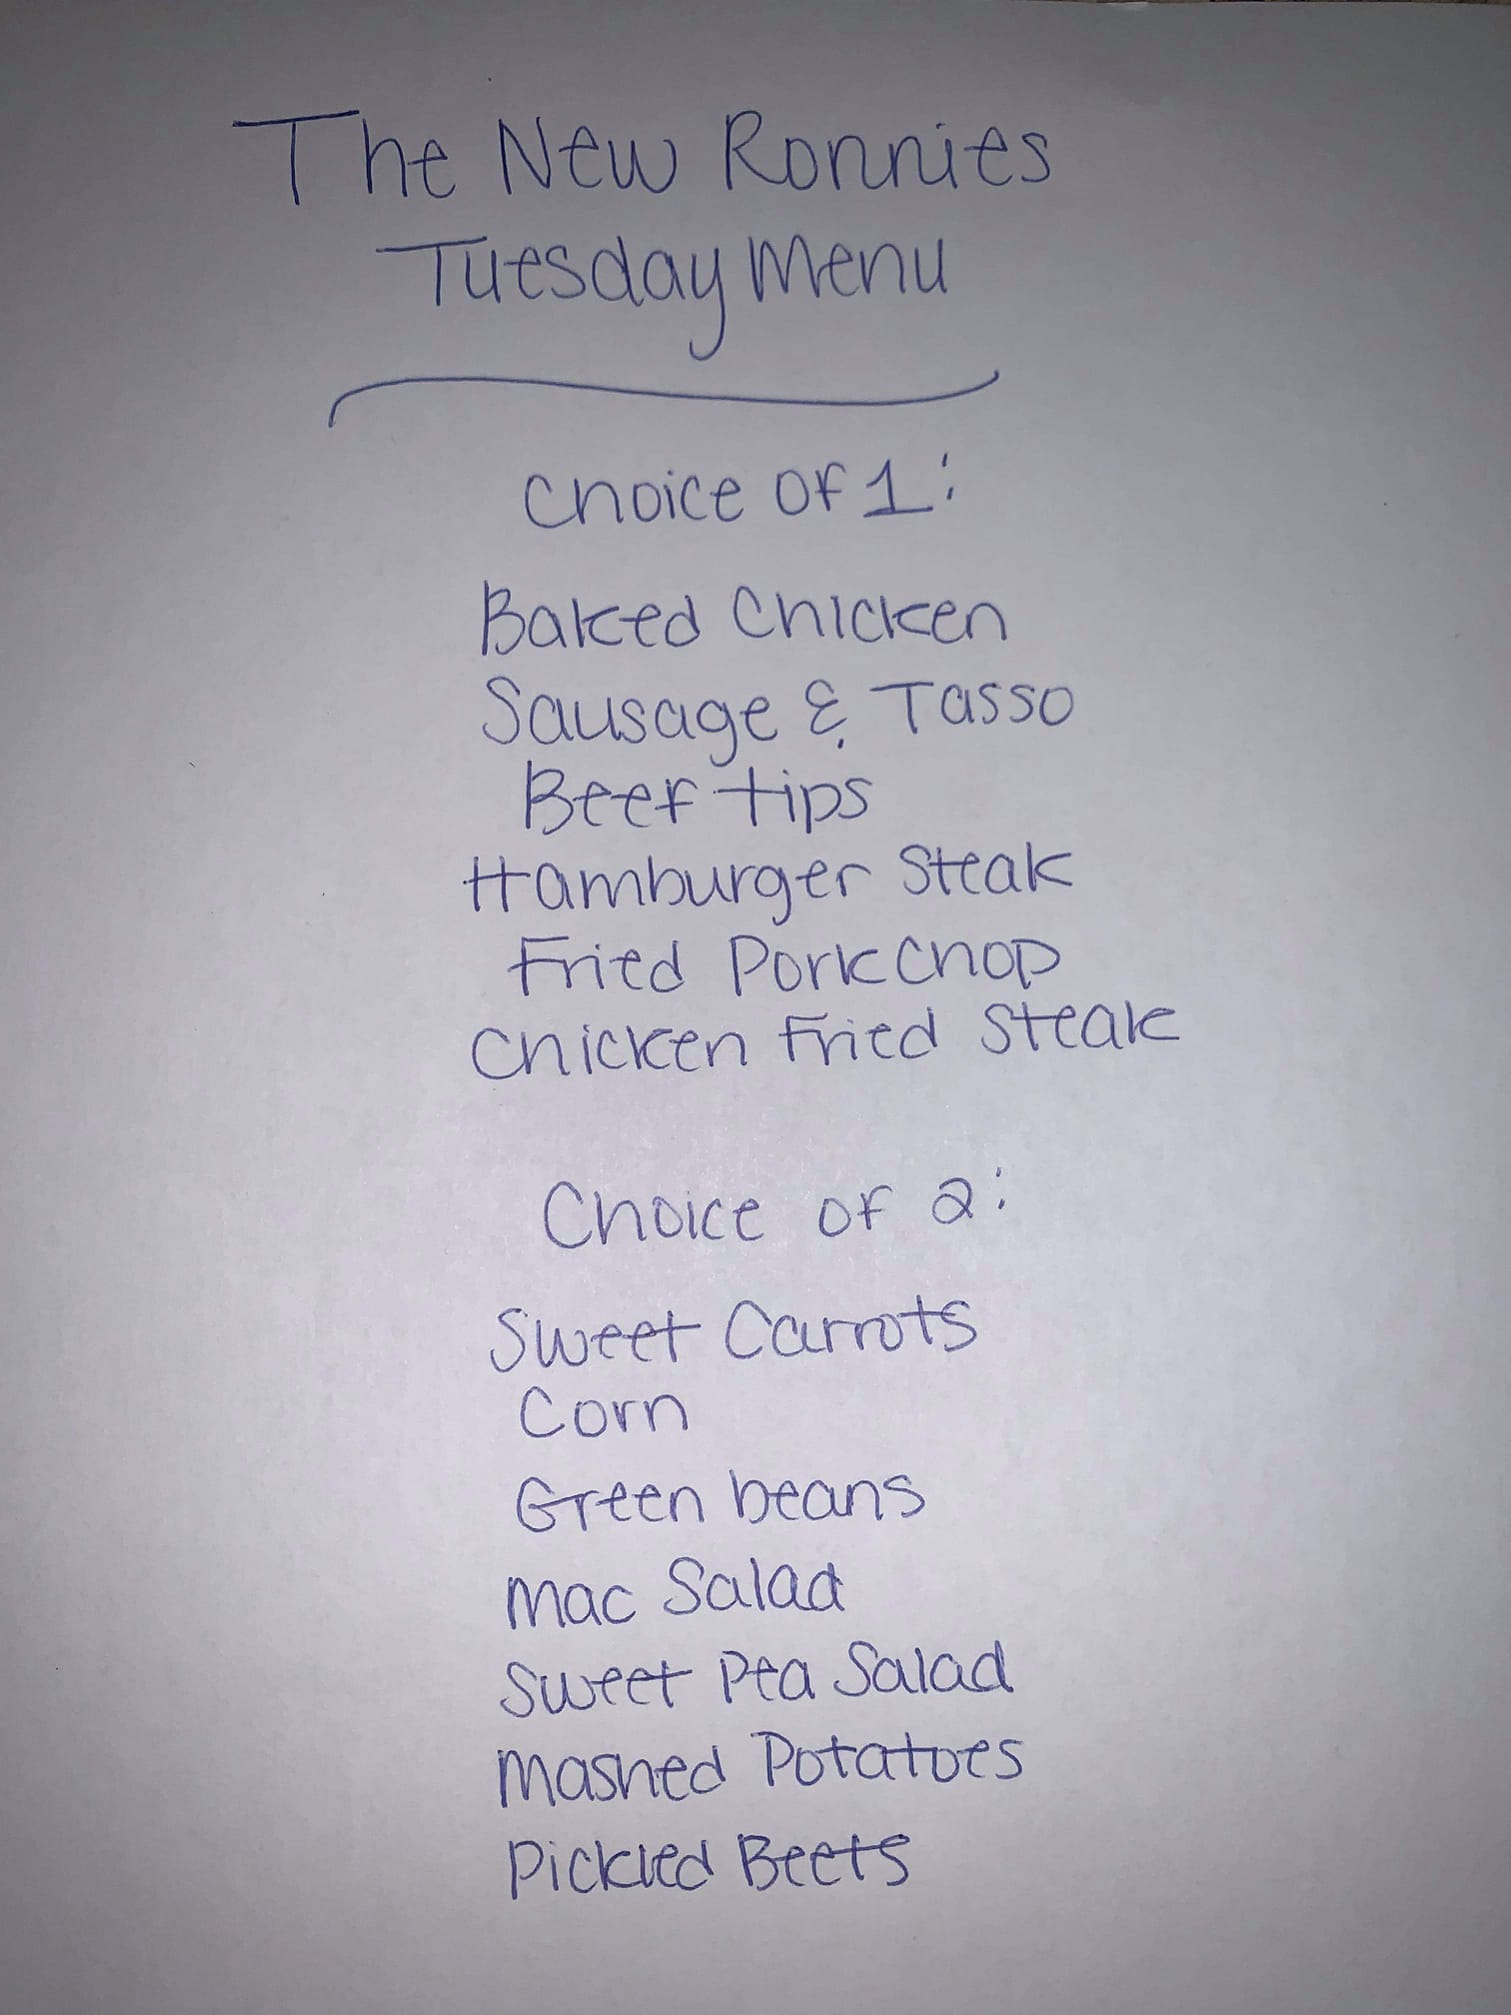 The New Ronnies
Tuesday Menu
Choice of 1:
Baked Chicken
Sausage & Tasso
Beef tips
Hamburger Steak
Fried Pork Chop
Chicken Fried Steak
Choice of 2:
Sweet Carrots
Corn
Green beans
Mac Salad
Sweet Pea Salad
Mashed Potatoes
Pickled Beets